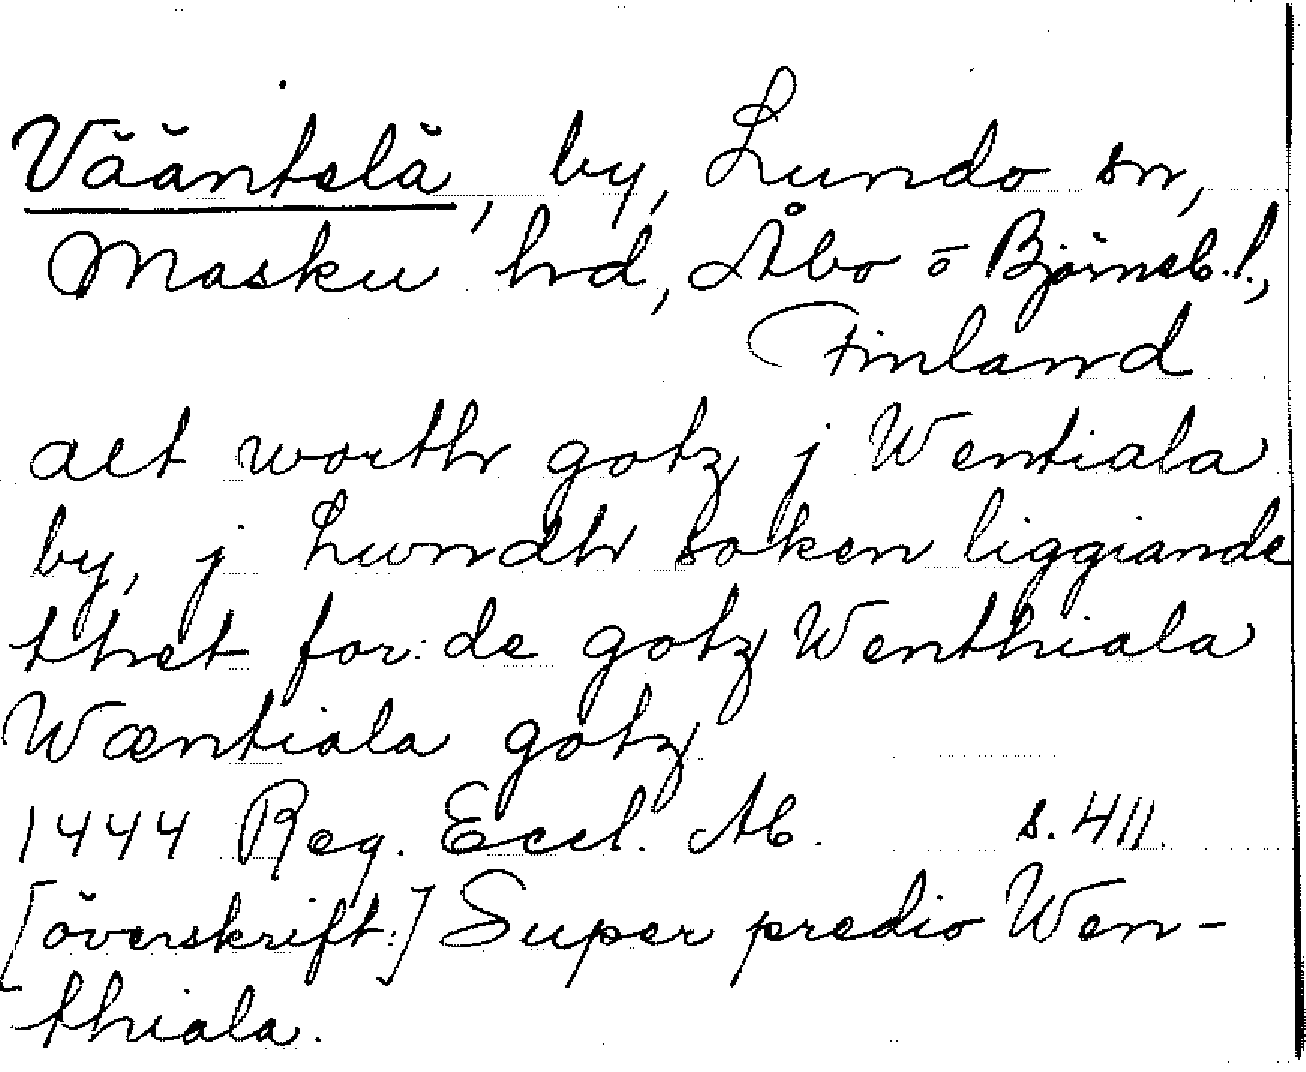 Vääntelä, by, Lundo sn,
Masku hrd, Åbo o Björneb. l.,
Finland
alt worth gotz j Wentiala
by, j Lundh soken liggiande
thet for:de gotz Wenthiala
Wæntiala gotz
1444 Reg. Eccl. Ab. s. 411.
[överskrift:] Super predio Wen-
thiala.